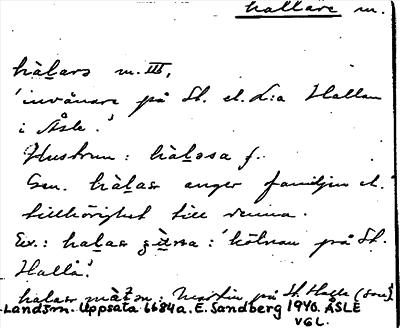 hallare m.
hälars m. III,
'invånare på St. el. L:a Hallan
i Åsle.'
Hustrun: hälasa f.
Gen. hälas anger familjen el.
tillhörighet till denna.
Ex.: halas : på St.
Halla.'
halas : Martin på St. Halla
Landsm. Uppsala 6684a. E. Sandberg 1940. ÅSLE
VGL.